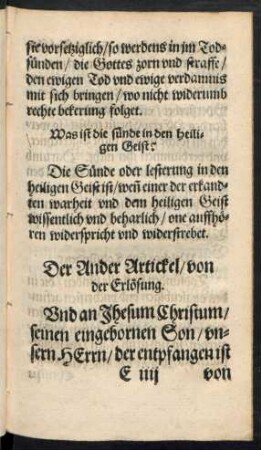 sie vorsetziglich / so werdens in jm Tod-
sünden / die Gottes zorn vnd straffe /
den ewigen Tod vnd ewige verdamnis
mit sich bringen / wo nicht widerumb
rechte bekerung folget.
Was ist die sünde in den heili-
gen Geist?
Die Sünde oder lesterung in den
heiligen Geist ist / weñ einer der erkand-
ten warheit vnd dem heiligen Geist
wissentlich vnd beharlich / one auffhö-
ren widerspricht vnd widerstrebet.
Der Ander Artickel / von
der Erlösung.
Vnd an Jhesum Christum /
seinen eingebornen Son / vn-
sern HErrn / der entpfangen ist
E iiij von